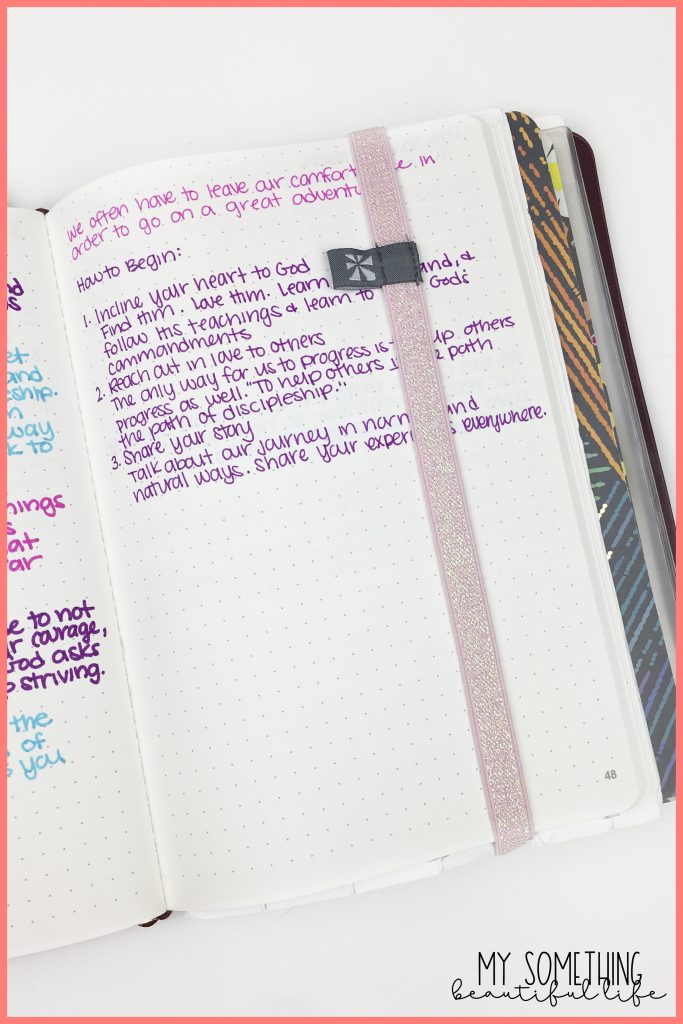 and
way
to
to not
courage,
God asks
striving.
the
of
you.
We often have to leave our comfort in
order to go on a great
How to Begin:
1. Incline your heart to God
Find Him. Love Him. Learn &
follow His teachings & learn to God's
commandments
2. Reach out in love to others
The only way for us to progress is up others
progress as well. "To help others path
the path of discipleship."
3. Share your story
Talk about our journey in and
natural ways. Share your everywhere.
48
MY SOMETHING
beautiful life